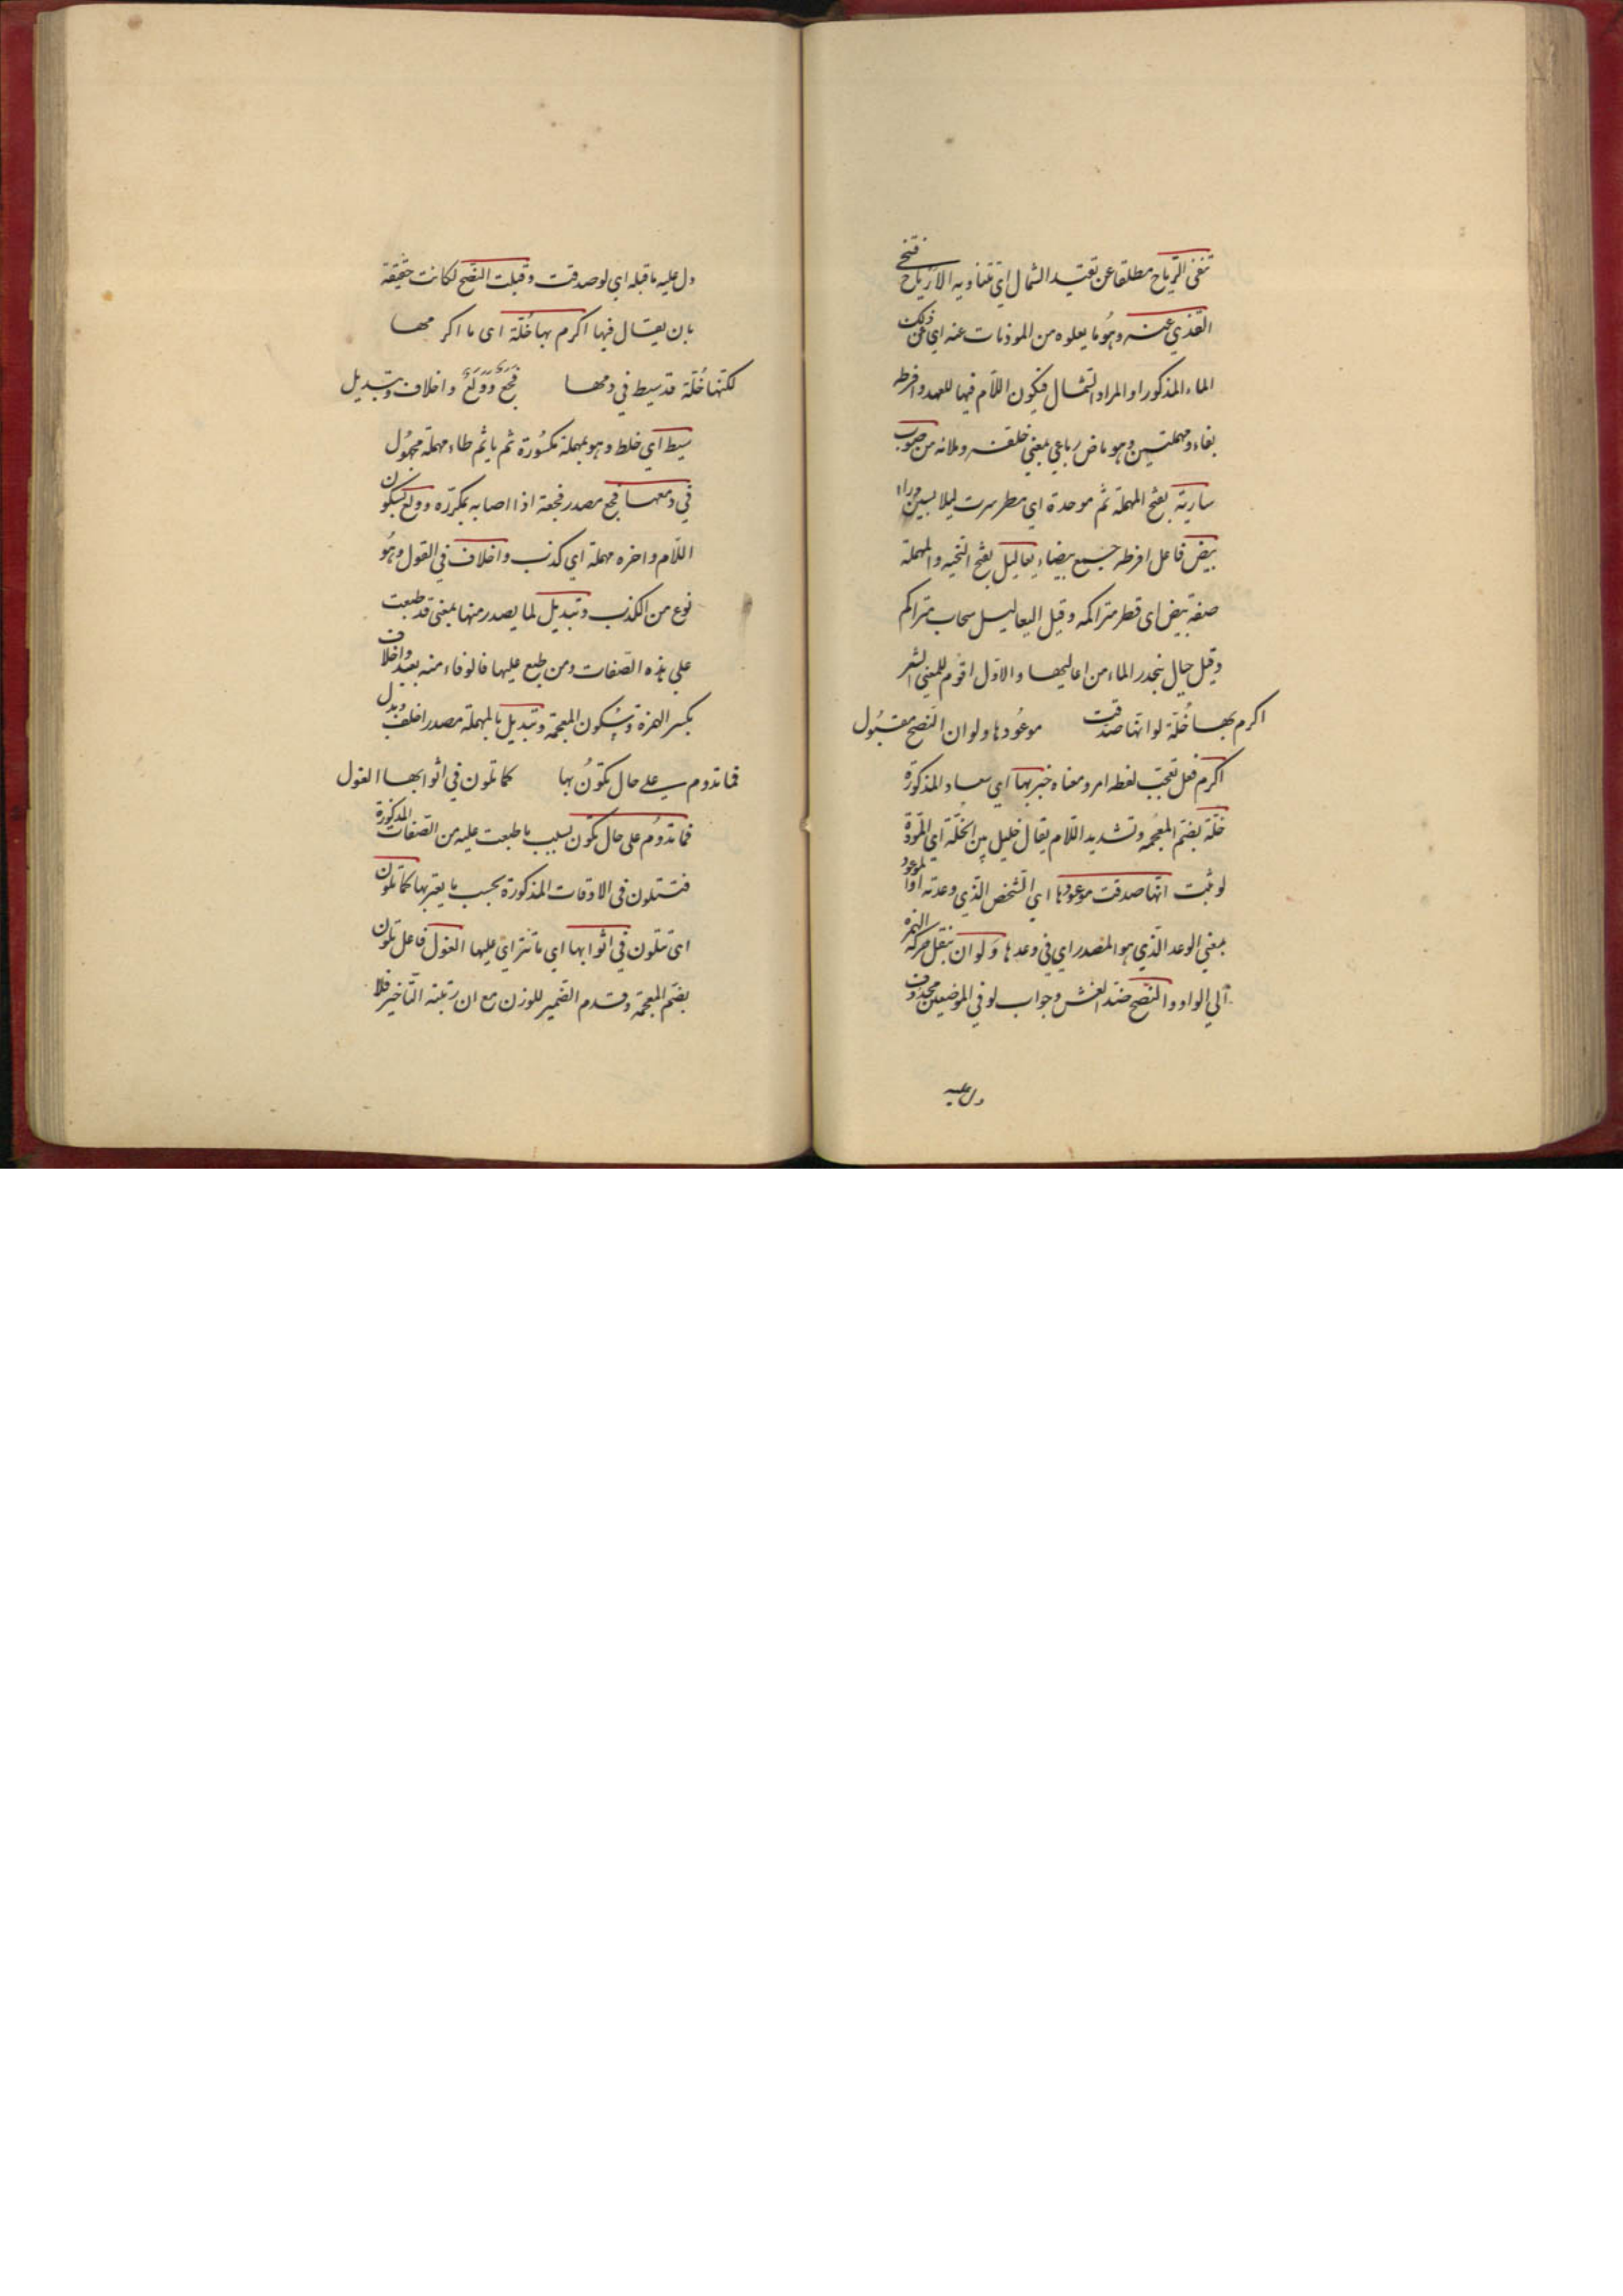 تنفى الرياح مطلقا عن تقييد الشمال اى تتناوبه الارياح فتنحى
القذى عنه وهو ما يعلوه من الموذيات عنه اى عن ذلك
الماء المذكور او المراد الشمال فيكون اللام فيها للعهد وافرطه
بفاء ومهملتين وهو ماض رباعي بمعنى خلفه وملاه من صوب
سارية بفتح المهملة ثم موحدة اى مطر سرت ليلا بسين وراء
بيض فاعل افرطه جمع بيضاء يعاليل بفتح التحتية والمهملة
صفة بيض اى قطر متراكمه وقيل اليعاليل سحاب متراكم
وقيل جبال ينحدر الماء من اعاليها والاول اقوم للمعنى الشعر
اكرم بها خُلّة لو انها صدقت موعُودها ولو ان النصح مقبُول
اكرم فعل تعجب لفظه امر ومعناه خبر بها اى سعاد المذكورة
خلّة بضم المعجمة وتشديد اللام يقال خليل بين الخلّة اى المودّة
لو ثبت انها صدقت موعودها اى الشخص الذي وعدته او الموعود
بمعنى الوعد الذي هو المصدر اى في وعدها ولو ان بنقل حركة الهمزه
الى الواو والنصح ضد الغش وجواب لو في الموضعين محذوف
دل عليه
دل عليه ما قبله اى لو صدقت وقبلت النصح لكانت حقيقة
بان يقال فيها اكرم بها خُلّة اى ما اكرمها
لكنها خُلّة قد سيط في دمها فجعٌ وولعٌ واخلاف وتبديل
سيط اى خلط وهو بمهملة مكسُورة ثم يا ثم طاء مهملة مجهُول
في دمها فجع مصدر فجعة اذا اصابه بمكروه وولع بسكون
اللام واخره مهملة اى كذب واخلاف في القول وهُو
نوع من الكذب وتبديل لما يصدر منها بمعنى قد طبعت
على هذه الصفات ومن طبع عليها فالوفاء منه بعيد واخلاف
بكسر الهمزة وسُكون المعجمة وتبديل بالمهملة مصدر اخلف وبدل
فما تدوم على حال تكونُ بها كما تلون في اثوابها الغول
فما تدوُم على حال تكون بسبب ما طبعت عليه من الصفات المذكورة
فتتلون في الاوقات المذكورة بحسب ما يعتريها كما تلون
اى تتلون في اثوابها اى ما تتراى عليها الغول فاعل تلون
بضم المعجمة وقدم الضمير للوزن مع ان رتبته التاخير فلا